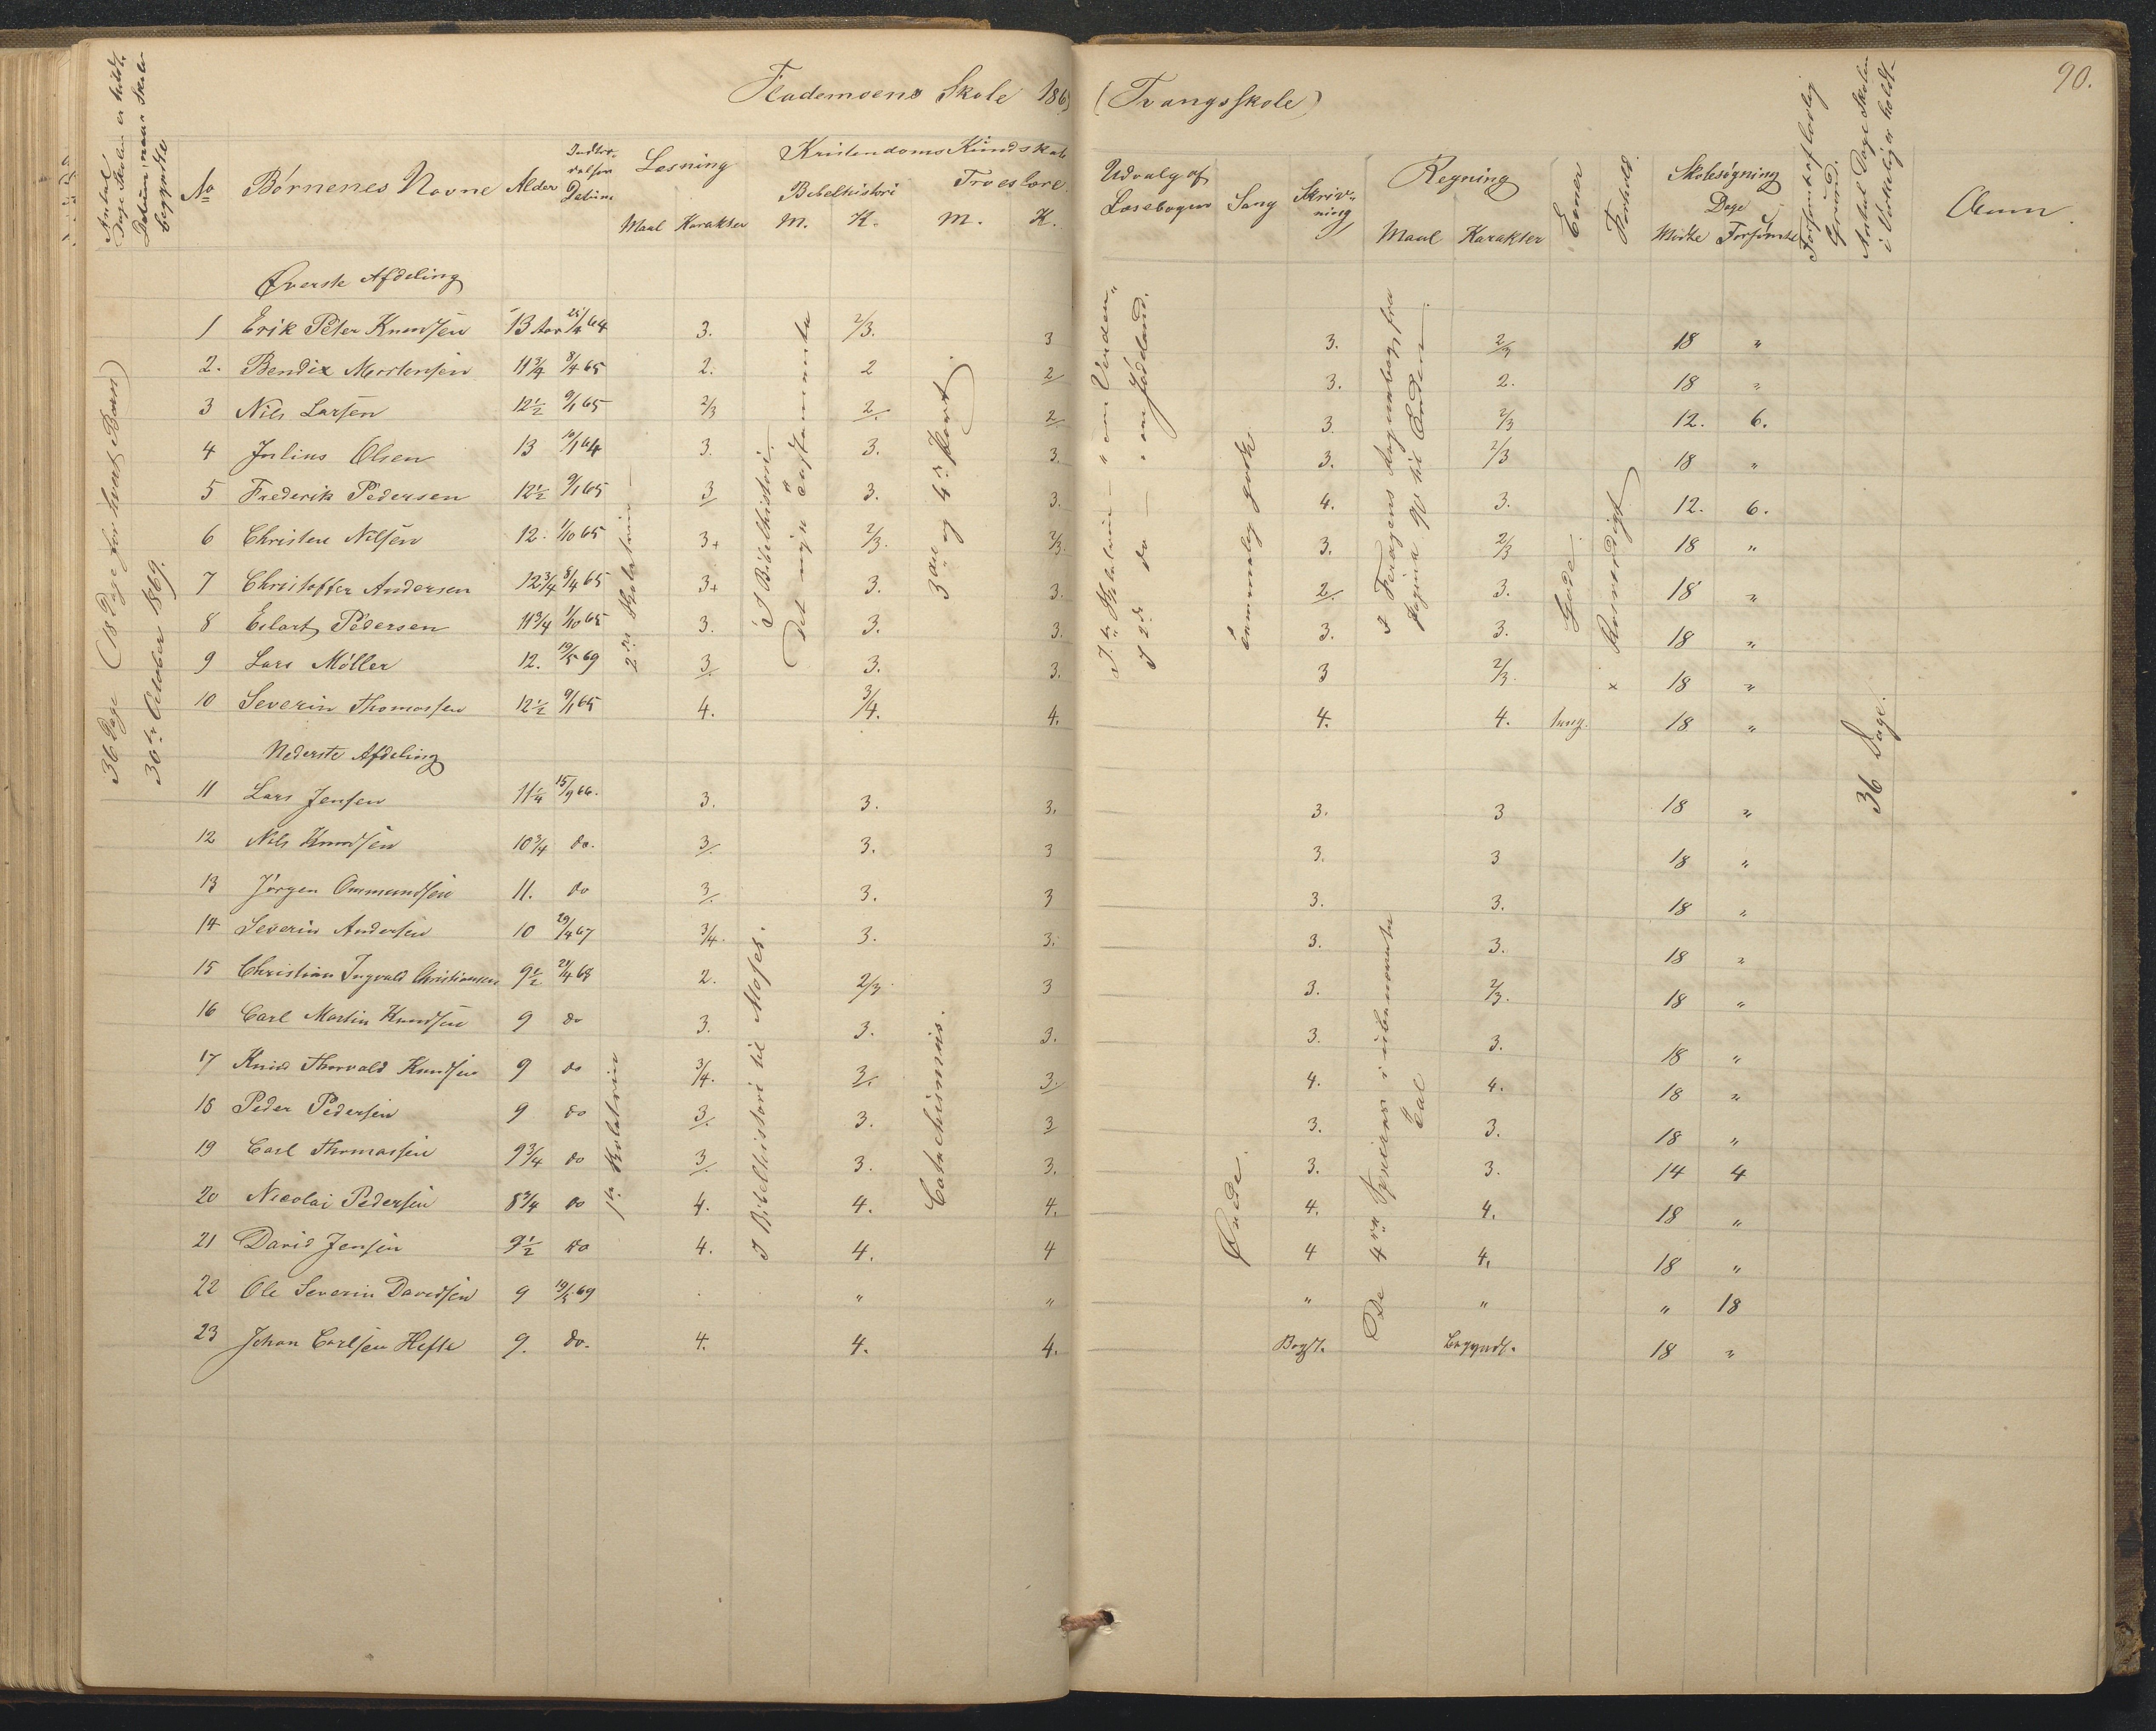 Flademoens Skole 1869 (Tvangsskole)
90.
Antal Dage Skolen er holdt.
Datum, naar Skolen begyndte
No Børnenes Navne Alder Indtrædelsens Datum Læsning Kristendoms Kundskab
Maal Karakter Bibelhistori M. K. Troeslære. M. K.
Udvalg af Læsebogen Sang Skrivning Regning Maal Karakter Evner Forhold. Skolesøgning Dage Mødte Forsømte
Antal Dage Skolen i Virkelig er holdt
Anm.
36 Dage (18 Dage for hvert Barn)
30te October 1869.
Øverste Afdeling
1 Erik Peter Knudsen 13 Aar 25/4 64 3. 2/3. 3 3. 2/3 18 "
2. Bendix Mortensen 11 3/4 8/4 65 2. 2 2 3. 2. 18 "
3 Nils Larsen 12 1/2 9/1 65 2/3 2. 2 3. 2/3 12. 6.
4 Julius Olsen 13 10/1 64 3. 3. 3. 3. 2/3 18 "
5 Frederik Pedersen 12 1/2 9/1 65 3 3. 3. 4. 3. 12. 6.
6 Christen Nilsen 12. 1/10 65 3+ 2/3. 2/3. 3. 2/3 18 "
7 Christoffer Andersen 12 3/4 8/4 65 3+ 3. 3. 2. 3. 18 "
8 Edart Pedersen 11 3/4 1/10 65 3. 3. 3. 3. 3. 18 "
9 Lars Møller 12. 19/5 69 3. 3. 3. 3 2/3. x 18 "
10 Severin Thomassen 12 1/2 9/1 65 4. 3/4. 4. 4. 4. tung. 18 "
2det Skoletrin
I Bibelhistori.
Det nye Testamente
3die og 4de Part.
temmelig godt.
Pagina 90 til Enden
Gode.
Roesværdigt
36 Dage.
Nederste Afdeling
11 Lars Jensen 11 1/4 15/9 66. 3. 3. 3. 3. 3 18 "
12 Nils Knudsen 10 3/4 do. 3. 3. 3 3. 3 18 "
13 Jørgen Ommundsen 11. do 3. 3. 3 3. 3. 18 "
14 Severin Andersen 10 29/4 67 3/4. 3. 3. 3. 3. 18 "
15 Christian Ingvald Christiansen 9 1/2 24/4 68 2. 2/3. 3 3. 2/3. 18 "
16 Carl Martin Knudsen 9 do 3. 3. 3. 3. 3. 18 "
17 Knud Thorvald Knudsen 9 do 3/4. 3. 3. 4. 4. 18 "
18 Peder Pedersen 9 do 3. 3. 3 3. 3. 18 "
19 Carl Thomassen 9 3/4 do 3. 3. 3. 3. 3. 14 4
20 Nicolai Pedersen 8 3/4 do 4. 4. 4. 4. 4. 18 "
21 David Jensen 9 1/2 do 4. 4. 4 4 4. 18 "
22 Ole Severin Davidsen 9 19/5 69 . " " " " " 18
23 Johan Carlsen Hefte 9. do. 4. 4. 4. Begt. begyndt. 18 "
1ste Skoletrin
I Bibelhistori til Moses.
Catechismus.
De 4re Specier i ubenævnte Tal